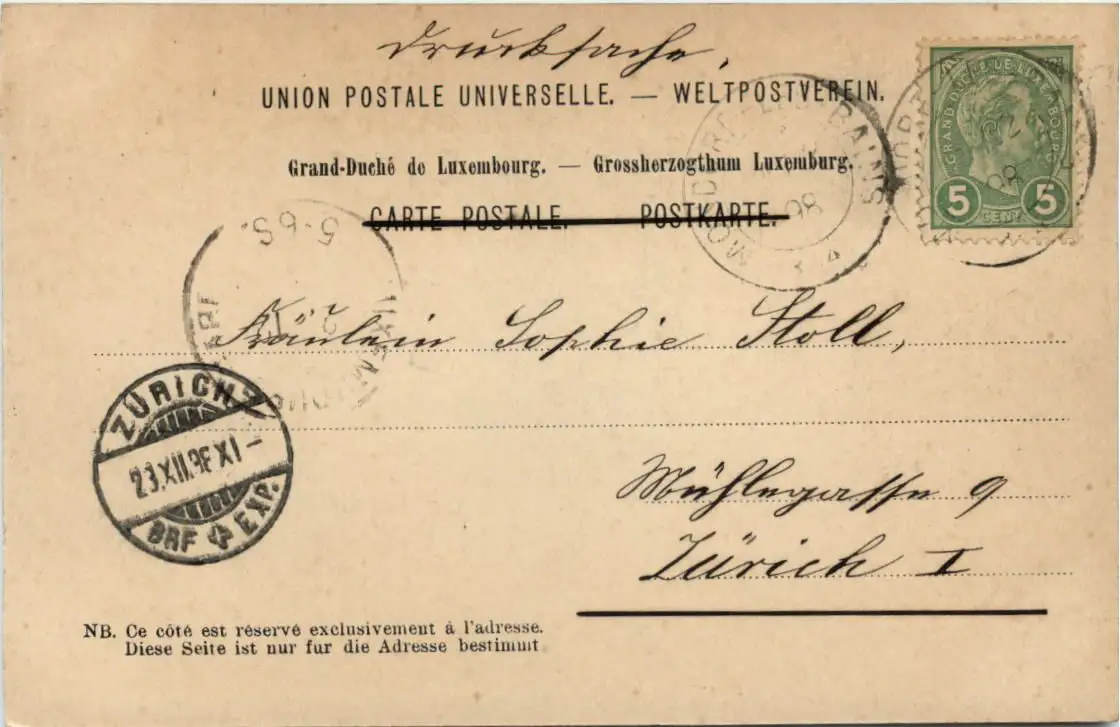 Drucksache,
UNION POSTALE UNIVERSELLE. — WELTPOSTVEREIN.
Grand-Duché de Luxembourg. — Grossherzogthum Luxemburg.
CARTE POSTALE. POSTKARTE.
GRAND-DUCHÉ DE LUXEMBOURG
5 CENT. 5
MONDORF-LES-BAINS
98
5-6S.
Fräulein Sophie Stoll,
Mühlegasse 9
Zürich I
ZÜRICH
23.XII.98 XI-
BRF EXP.
NB. Ce côté est réservé exclusivement à l'adresse.
Diese Seite ist nur fur die Adresse bestimmt